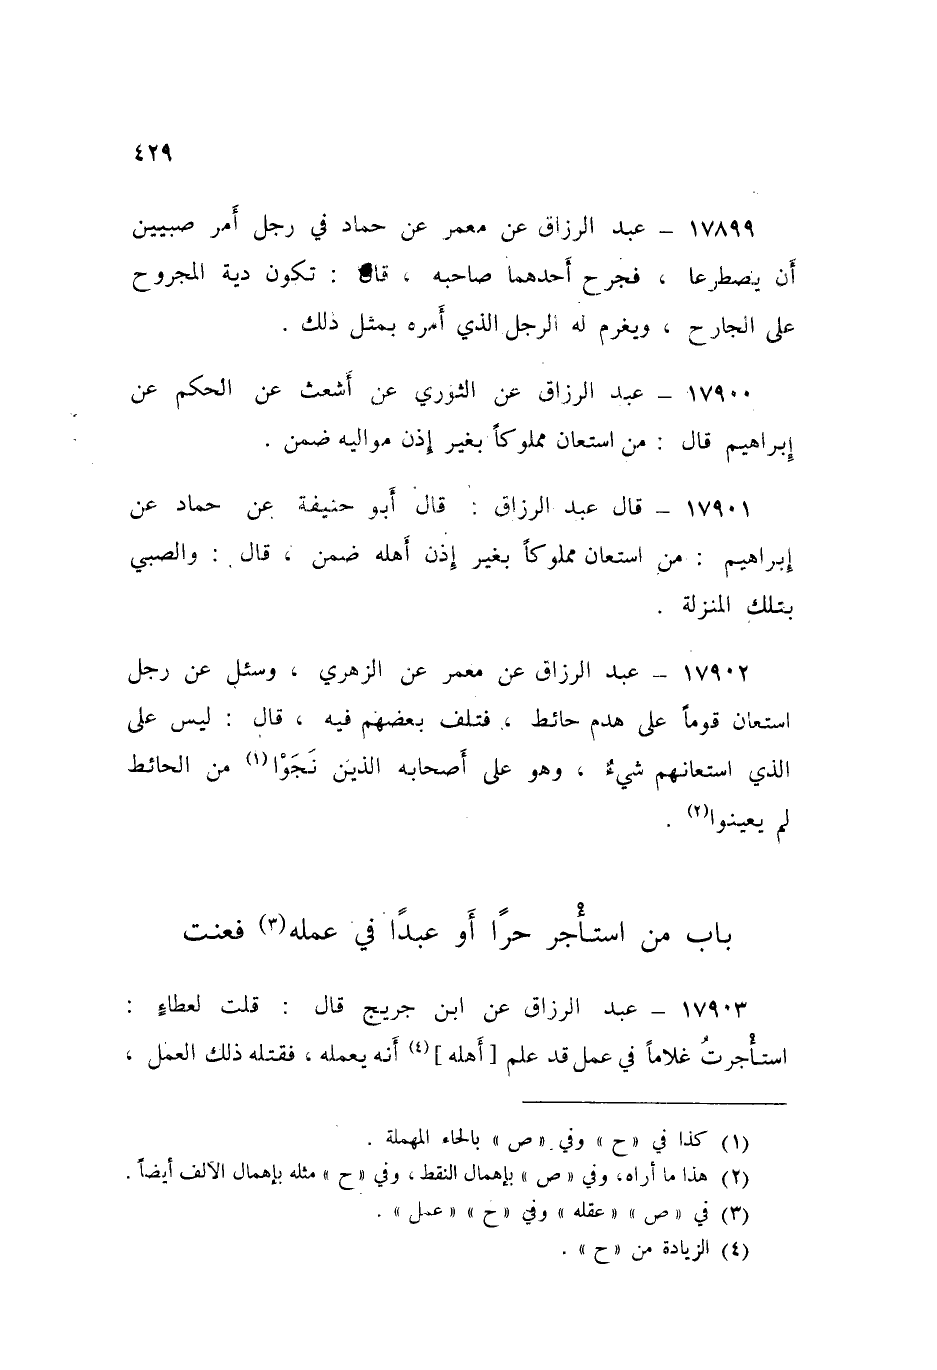 ٤٢٩
١٧٨٩٩ – عبد الرزاق عن معمر عن حماد في رجل أَمر صبيين
أَن يصطرعا ، فجرح أَحدهما صاحبه ، قال : تكون دية المجروح
على الجارح ، ويغرم له الرجل الذي أَمره بمثل ذلك .
١٧٩٠٠ – عبد الرزاق عن الثوري عن أَشعث عن الحكم عن
إبراهيم قال : من استعان مملوكاً بغير إذن مواليه ضمن .
١٧٩٠١ – قال عبد الرزاق : قال أَبو حنيفة عن حماد عن
إبراهيم : من استعان مملوكاً بغير إذن أهله ضمن ، قال : والصبي
بتلك المنزلة .
١٧٩٠٢ – عبد الرزاق عن معمر عن الزهري ، وسئل عن رجل
استعان قوماً على هدم حائط ، فتلف بعضهم فيه ، قال : ليس على
الذي استعانهم شيءٌ ، وهو على أَصحابه الذين نَجَوْا(١) من الحائط
لم يعينوا(٢) .
باب من استأْجر حرًّا أَو عبدًا في عمله(٣) فعنت
١٧٩٠٣ – عبد الرزاق عن ابن جريج قال : قلت لعطاءٍ :
استأْجرتُ غلاماً في عمل قد علم [ أَهله ](٤) أَنه يعمله ، فقتله ذلك العمل ،
(١) كذا في « ح » وفي « ص » بالحاء المهملة .
(٢) هذا ما أراه، وفي « ص » بإهمال النقط ، وفي « ح » مثله بإهمال الألف أيضاً .
(٣) في « ص » « عقله » وفي « ح » « عمل » .
(٤) الزيادة من « ح » .